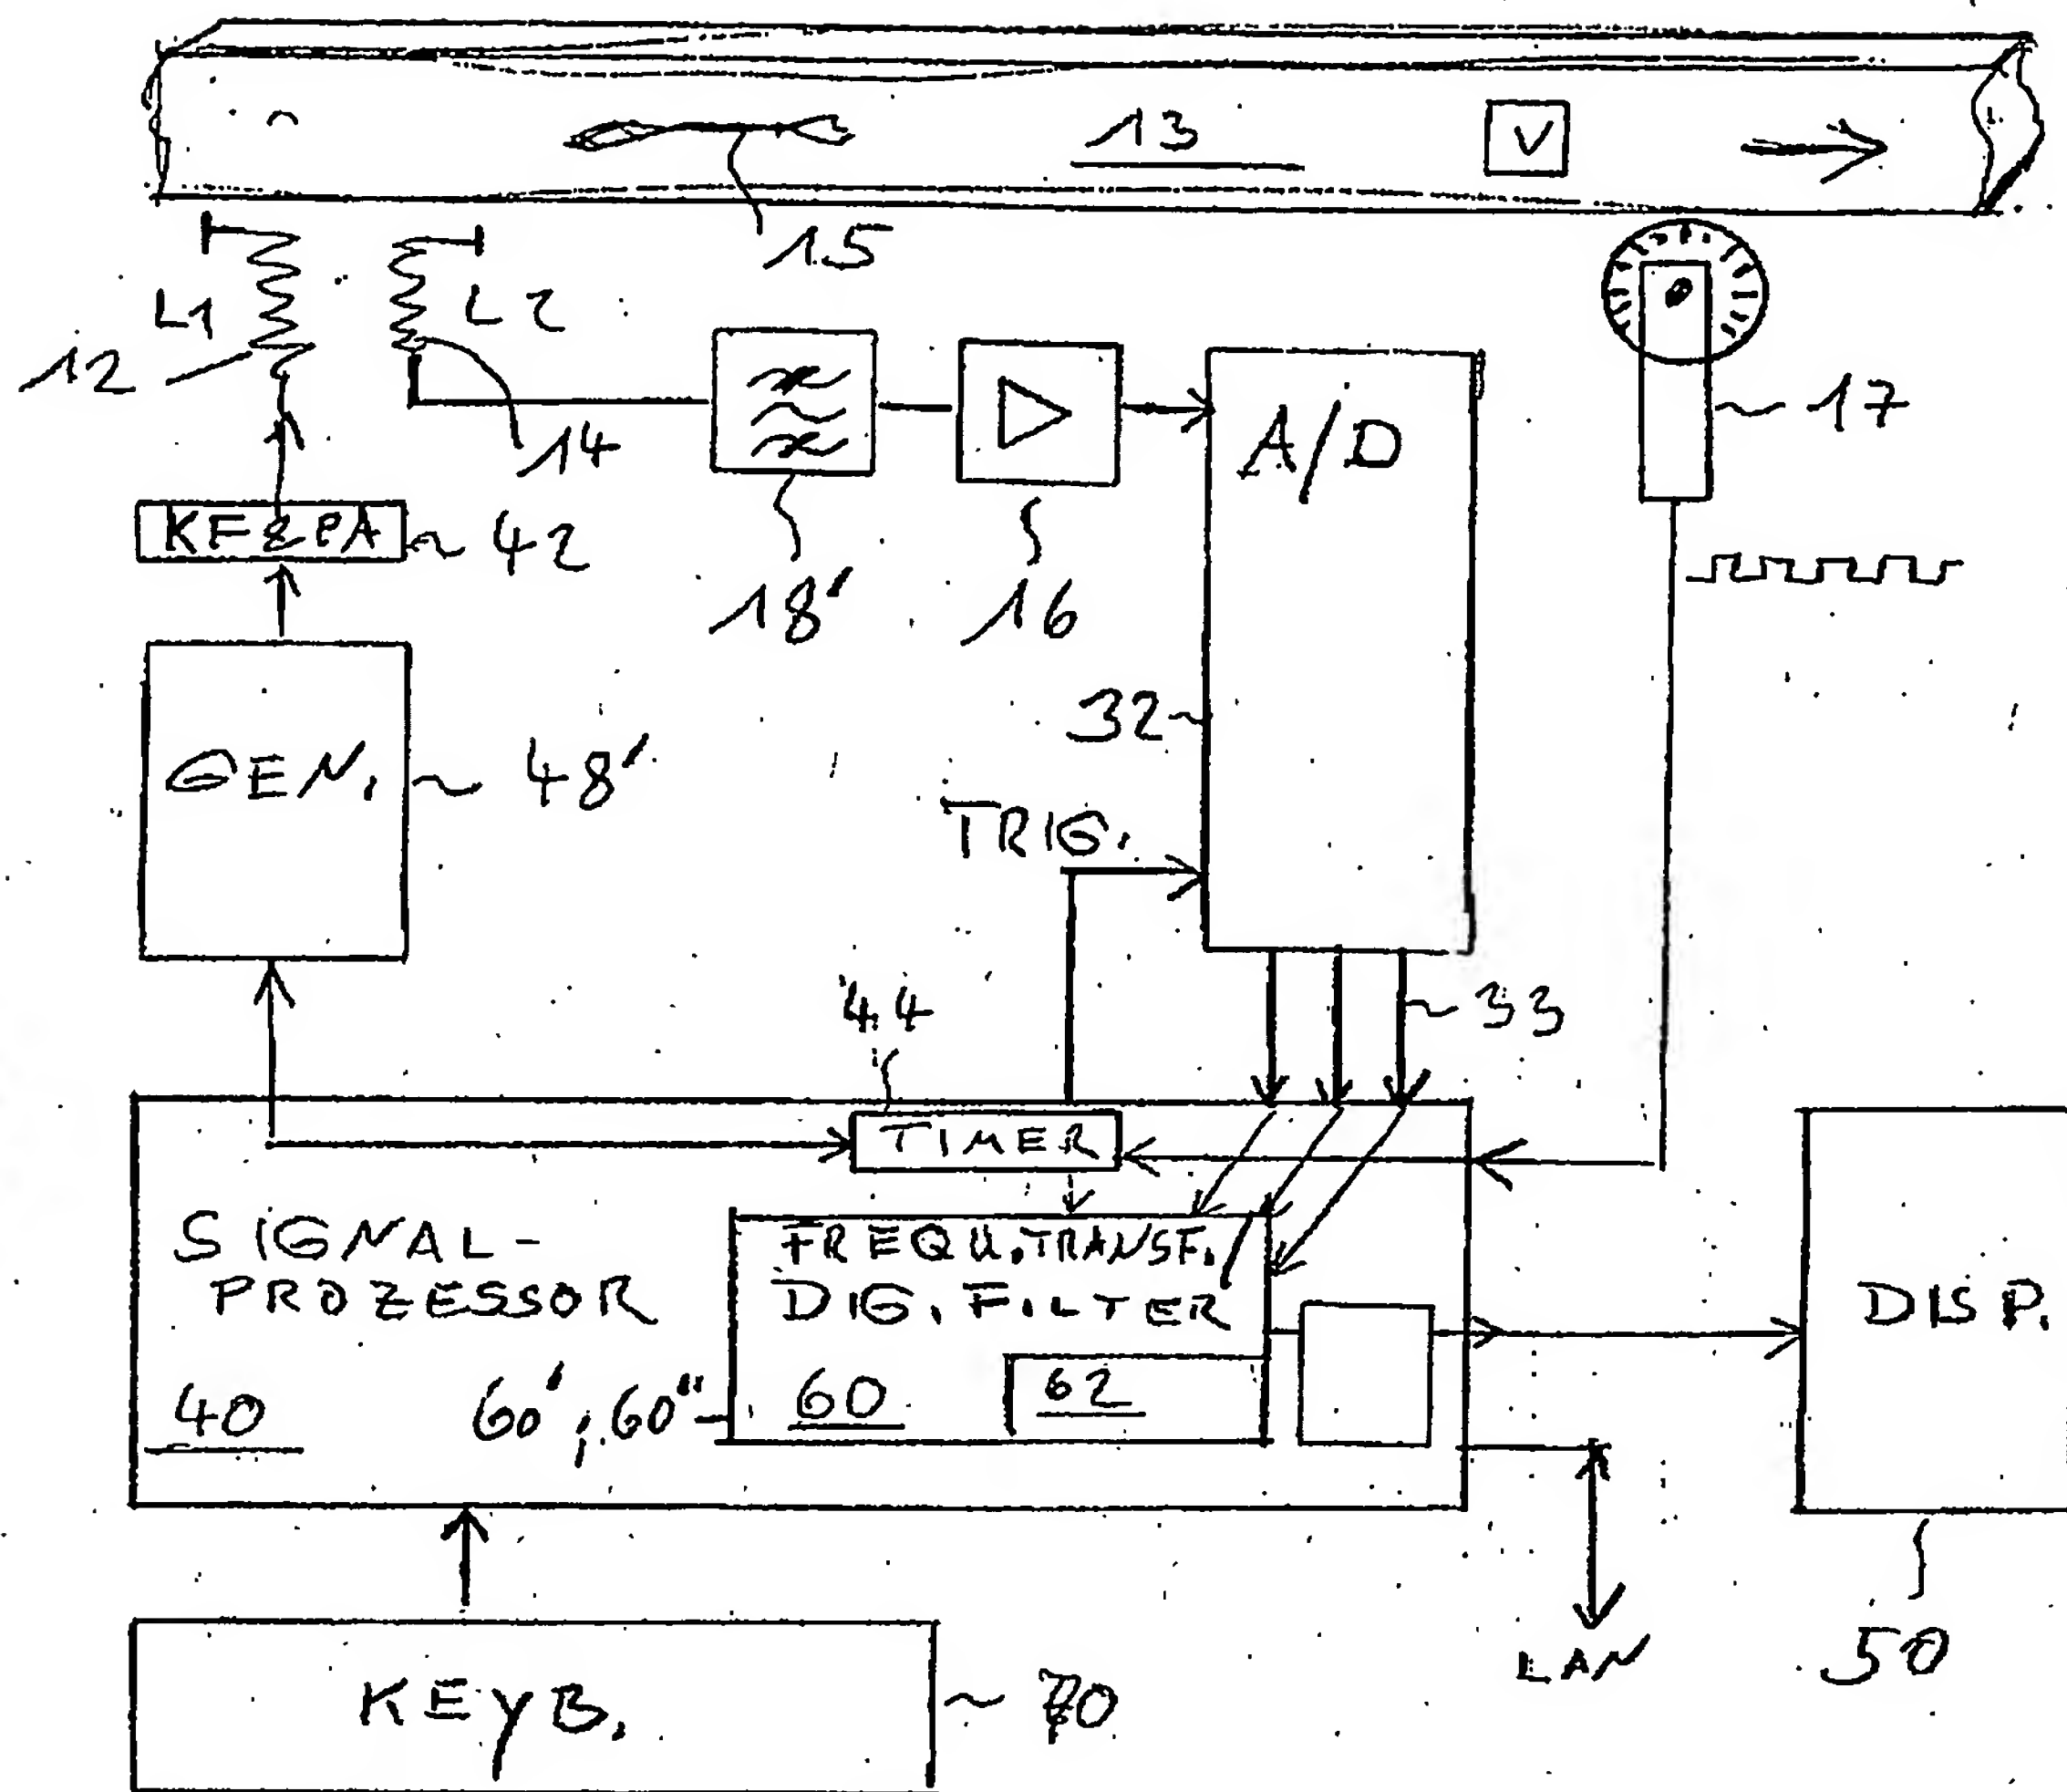 13
V
15
L1
L2
12
14
A/D
17
KF&PA
42
18'
16
32
GEN.
48'
TRIG.
44
33
TIMER
SIGNAL-
PROZESSOR
FREQU.TRANSF./
DIG.FILTER
DISP.
40
60', 60"
60
62
LAN
50
KEYB.